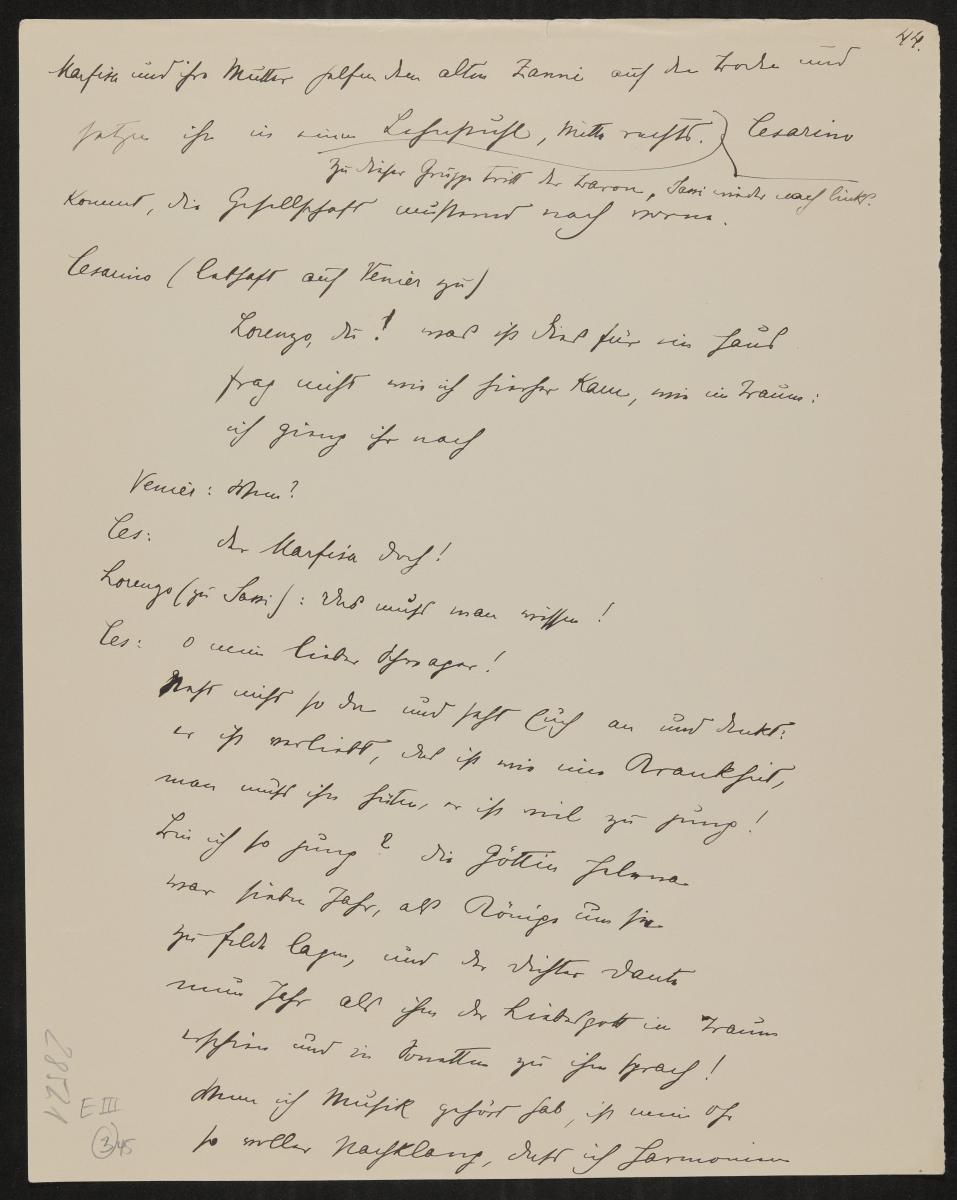 44.
Marfisa und ihre Mutter helfen dem alten Zanni auf die Beine und
setzen ihn in einen Lehnstuhl, Mitte rechts. Cesarino
Zu dieser Gruppe tritt der Baron, Sassi wieder nach links.
kommt, die Gesellschaft musternd nach vorne.
Cesarino (lebhaft auf Venier zu)
Lorenzo, du! was ist dies für ein Haus
frag nicht wie ich hierher kam, wie im Traum:
ich gieng ihr nach
Venier: Wem?
Ces: der Marfisa doch!
Lorenzo (zu Sassi): Das muss man wissen!
Ces: O mein lieber Schwager!
Steht nicht so da und seht Euch an und denkt:
er ist verliebt, das ist wie eine Krankheit,
man muss ihn hüten, er ist viel zu jung!
Bin ich so jung? die Göttin Helena
war sieben Jahr, als Könige um sie
zu Felde lagen, und der Dichter Dante
neun Jahr als ihm der Liebesgott im Traum
erschien und in Sonetten zu ihm sprach!
Wenn ich Musik gehört hab, ist mein Ohr
so voller Nachklang, dass ich Harmonieen
28521
E III
3 45